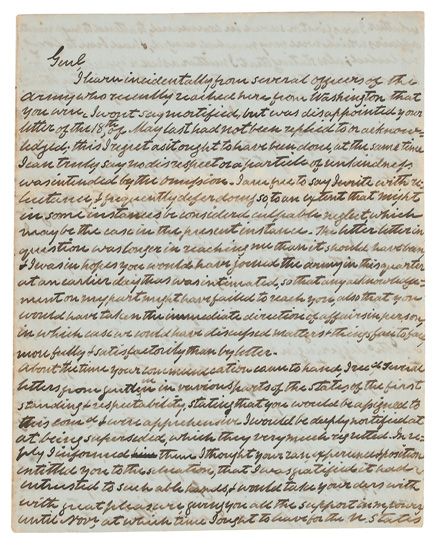 Genl
I learn incidentally from several officers of the
Army who recently reached here from Washington that
you were, I wont say mortified, but was disappointed your
letter of the 18th of May last had not been replied to or acknow-
ledged, this I regret as it ought to have been done, at the same time
I can truly say no disrespect or a particle of unkindness
was intended by the omission. I am free to say I write with re-
luctance, & frequently defer doing so to an extent that might
in some instances be considered culpable neglect which
may be the case in the present instance. The letter in
question was longer in reaching me than it should have been
& I was in hopes you would have joined the army in this quarter
at an earlier day than was intimated, so that any acknowledge-
ment on my part might have failed to reach you, also that you
would have taken the immediate direction of affairs in person
in which case we could have discussed matters & things face to face
more fully & satisfactorily than by letter.
About the time your communication came to hand, I recd several
letters from gentlemen in various parts of the states of the first
standing & respectability, stating that you would be assigned to
this comd & were apprehensive I would be deeply mortified at
at being superseded, which they very much regretted. In re-
ply I informed them I thought your rank & position
entitled you to the situation, that I was gratified it had
entrusted to such able hands, & would take your orders with
with great pleasure giving you all the support in my power
until Novr at which time I ought to leave for the U. States